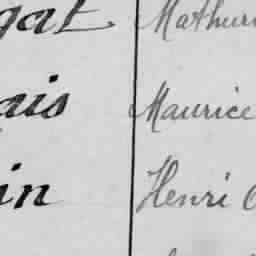 gat Mathuri
ais Maurice
in Henri